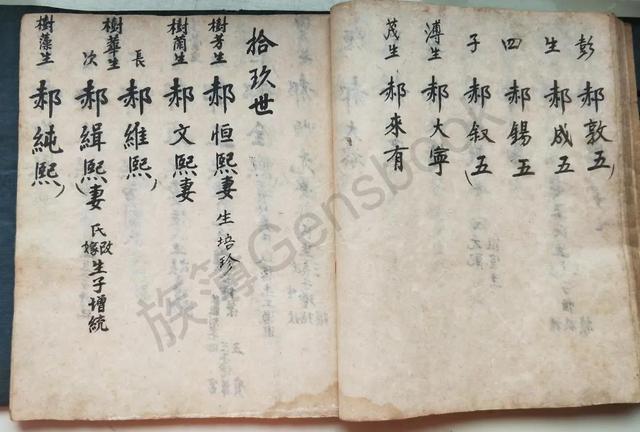 彭 郝敦五
生 郝成五
四 郝錫五
子 郝叙五
溥生 郝大寧
茂生 郝來有
拾玖世
樹芳生 郝恒熙妻 生培珍
樹蘭生 郝文熙妻
樹華生 長 郝維熙
次 郝緝熙妻 氏改嫁 生子增統
樹藻生 郝純熙
族簿Gensbook